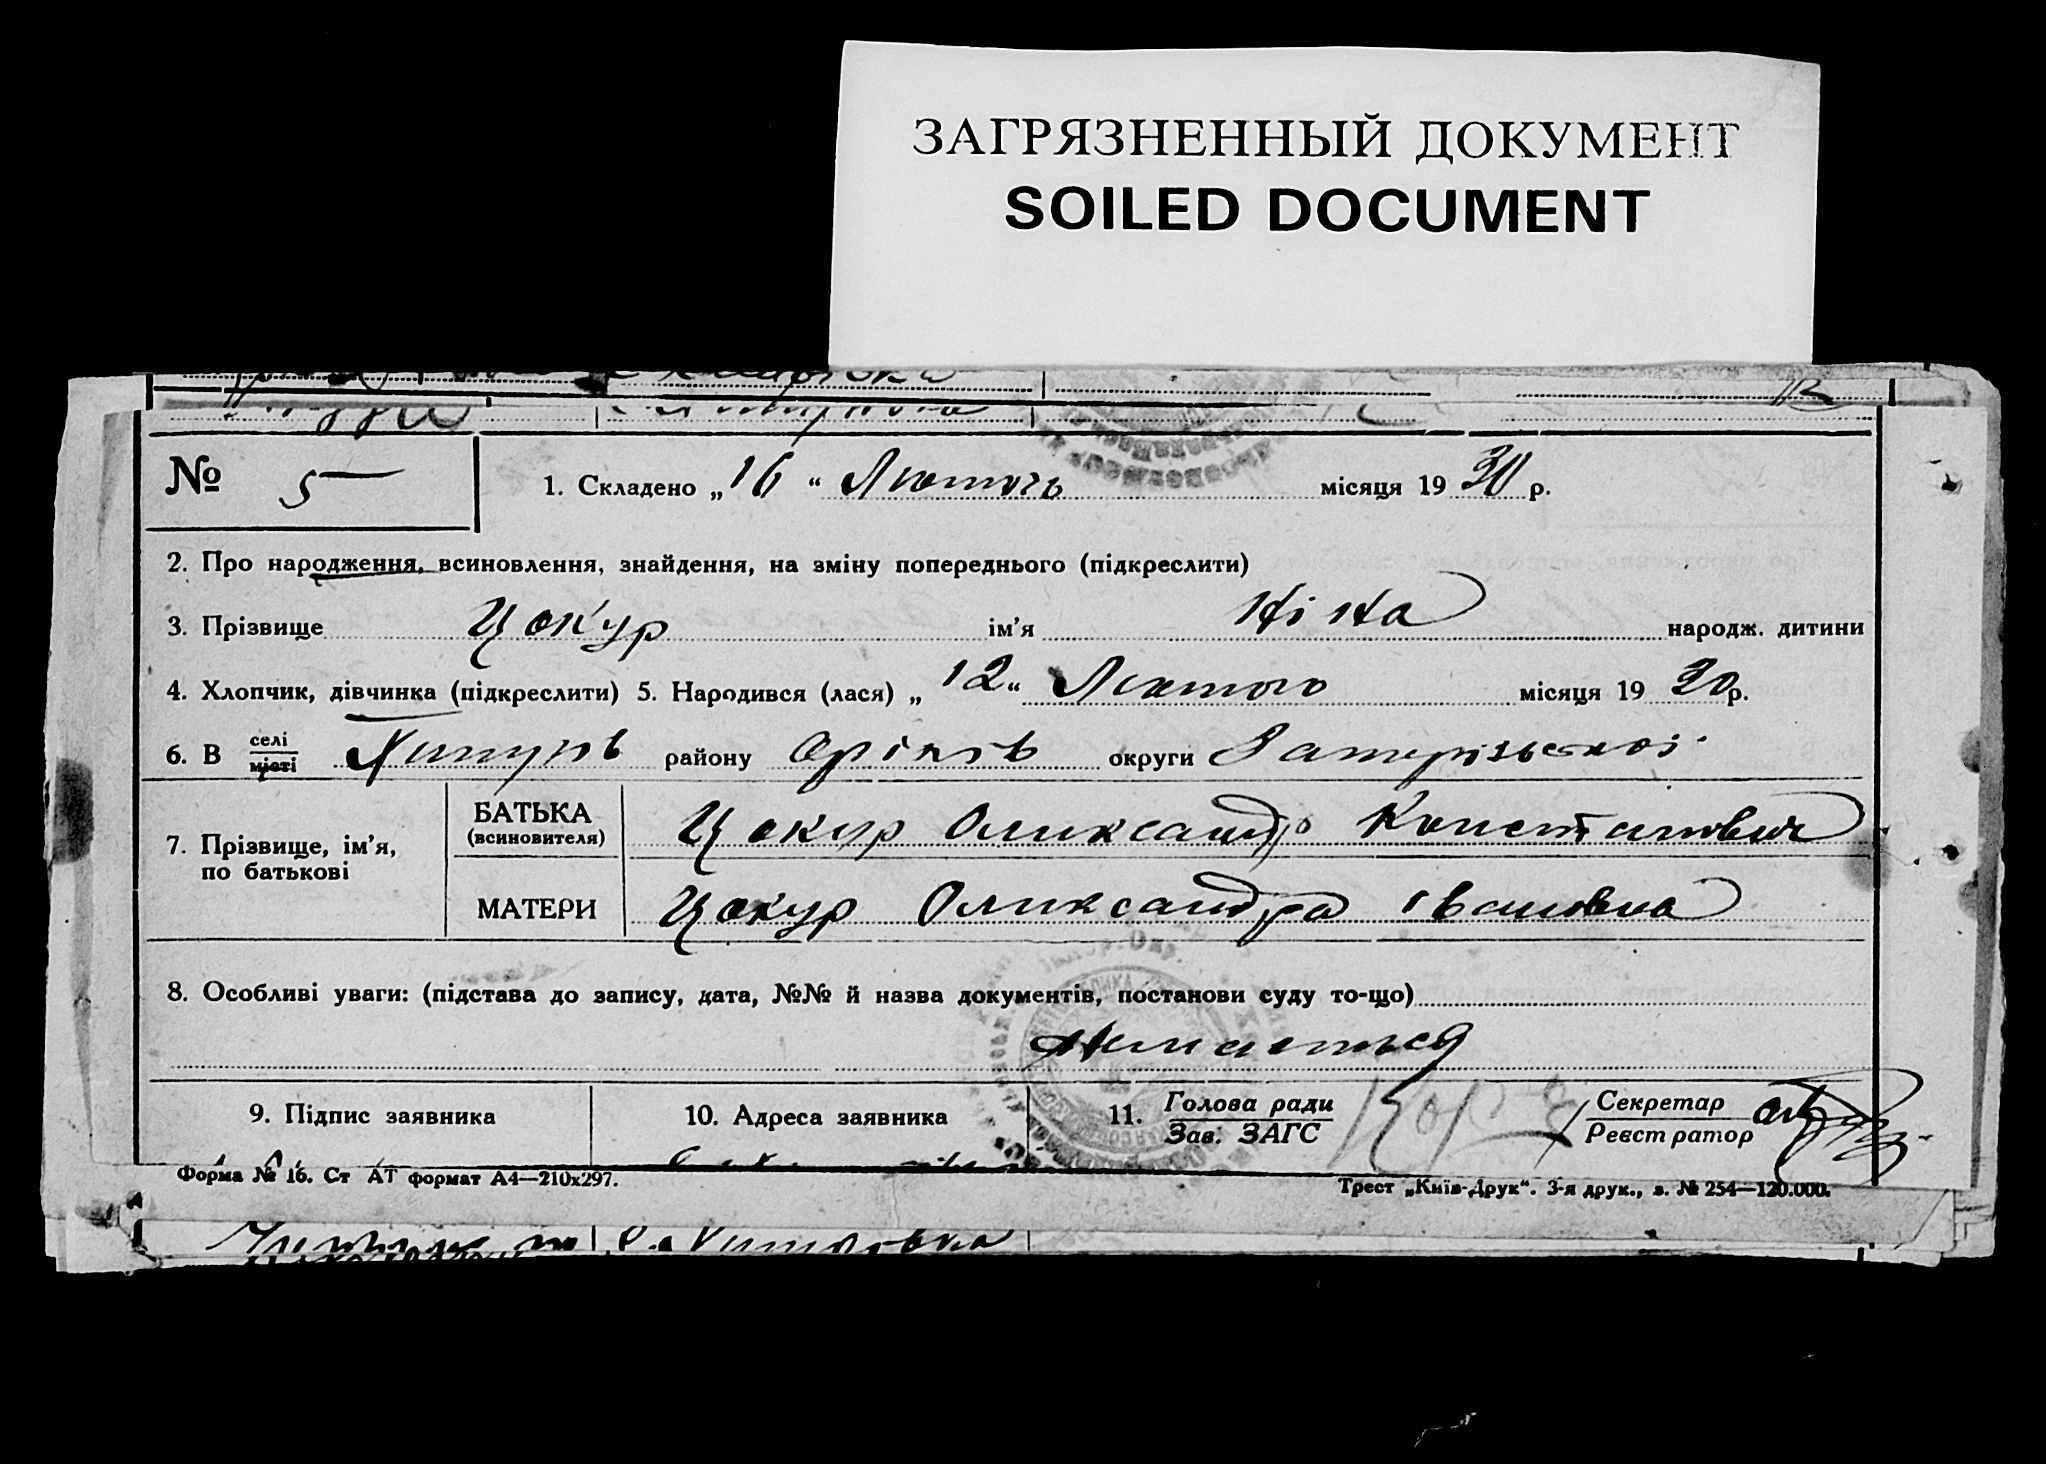 ЗАГРЯЗНЕННЫЙ ДОКУМЕНТ
SOILED DOCUMENT
№ 5
1. Складено „16“ Лютого місяця 1930 р.
2. Про народження, всиновлення, знайдення, на зміну попереднього (підкреслити)
3. Прізвище Цокур ім’я Ніна народж. дитини
4. Хлопчик, дівчинка (підкреслити) 5. Народився (лася) „12“ Лютого місяця 1930 р.
6. В селі
місті району Оріхів округи Запорізської
7. Прізвище, ім’я,
по батькові
БАТЬКА
(всиновителя)
Цокур Олександр Констанович
МАТЕРИ Цокур Олександра Івановна
8. Особливі уваги: (підстава до запису, дата, №№ й назва документів, постанови суду то-що)
9. Підпис заявника 10. Адреса заявника 11. Голова ради
Зав. ЗАГС
Секретар
Реєстратор
Форма № 16. Ст АТ формат А4—210х297.
Трест „Київ-Друк“. 3-я друк., з. № 254—120.000.